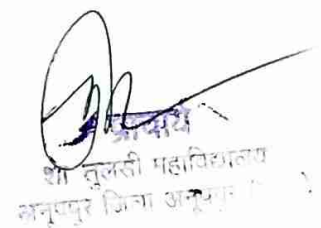 प्राचार्य
शा तुलसी महाविद्यालय
अनूपपुर जिला अनूपपुर